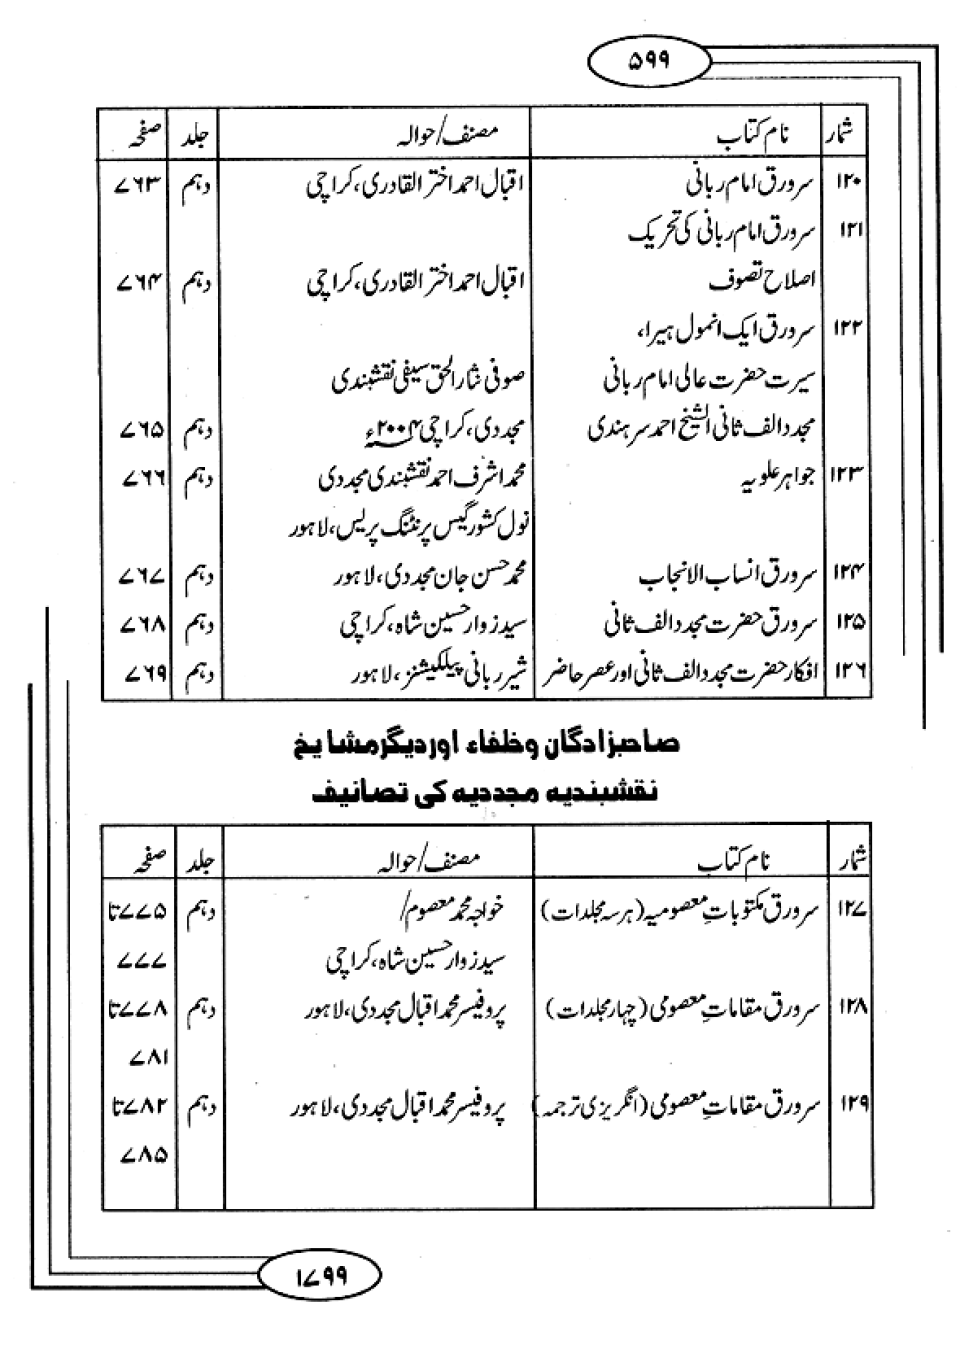 ۵۹۹
شمار نام کتاب مصنف/حوالہ جلد صفحہ
۱۲۰ سرورق امام ربانی اقبال احمد اختر القادری، کراچی دہم ۷۶۳
۱۲۱ سرورق امام ربانی کی تحریک
اصلاح تصوف اقبال احمد اختر القادری، کراچی دہم ۷۶۴
۱۲۲ سرورق ایک انمول ہیرا،
سیرت حضرت عالی امام ربانی صوفی نثار الحق سیفی نقشبندی
مجدد الف ثانی الشیخ احمد سرہندی مجددی، کراچی ۲۰۰۴ء دہم ۷۶۵
۱۲۳ جواہر علویہ محمد اشرف احمد نقشبندی مجددی دہم ۷۶۶
نول کشور گیس پرنٹنگ پریس، لاہور
۱۲۴ سرورق انساب الانجاب محمد حسن جان مجددی، لاہور دہم ۷۶۷
۱۲۵ سرورق حضرت مجدد الف ثانی سید زوار حسین شاہ، کراچی دہم ۷۶۸
۱۲۶ افکار حضرت مجدد الف ثانی اور عصر حاضر شیر ربانی پبلکیشنز، لاہور دہم ۷۶۹
صاحبزادگان و خلفاء اور دیگر مشایخ
نقشبندیہ مجددیہ کی تصانیف
شمار نام کتاب مصنف/حوالہ جلد صفحہ
۱۲۷ سرورق مکتوباتِ معصومیہ (ہر سہ مجلدات) خواجہ محمد معصوم/ دہم ۷۷۵ تا
سید زوار حسین شاہ، کراچی ۷۷۷
۱۲۸ سرورق مقاماتِ معصومی (چہار مجلدات) پروفیسر محمد اقبال مجددی، لاہور دہم ۷۷۸ تا
۷۸۱
۱۲۹ سرورق مقاماتِ معصومی (انگریزی ترجمہ) پروفیسر محمد اقبال مجددی، لاہور دہم ۷۸۲ تا
۷۸۵
۱۷۹۹